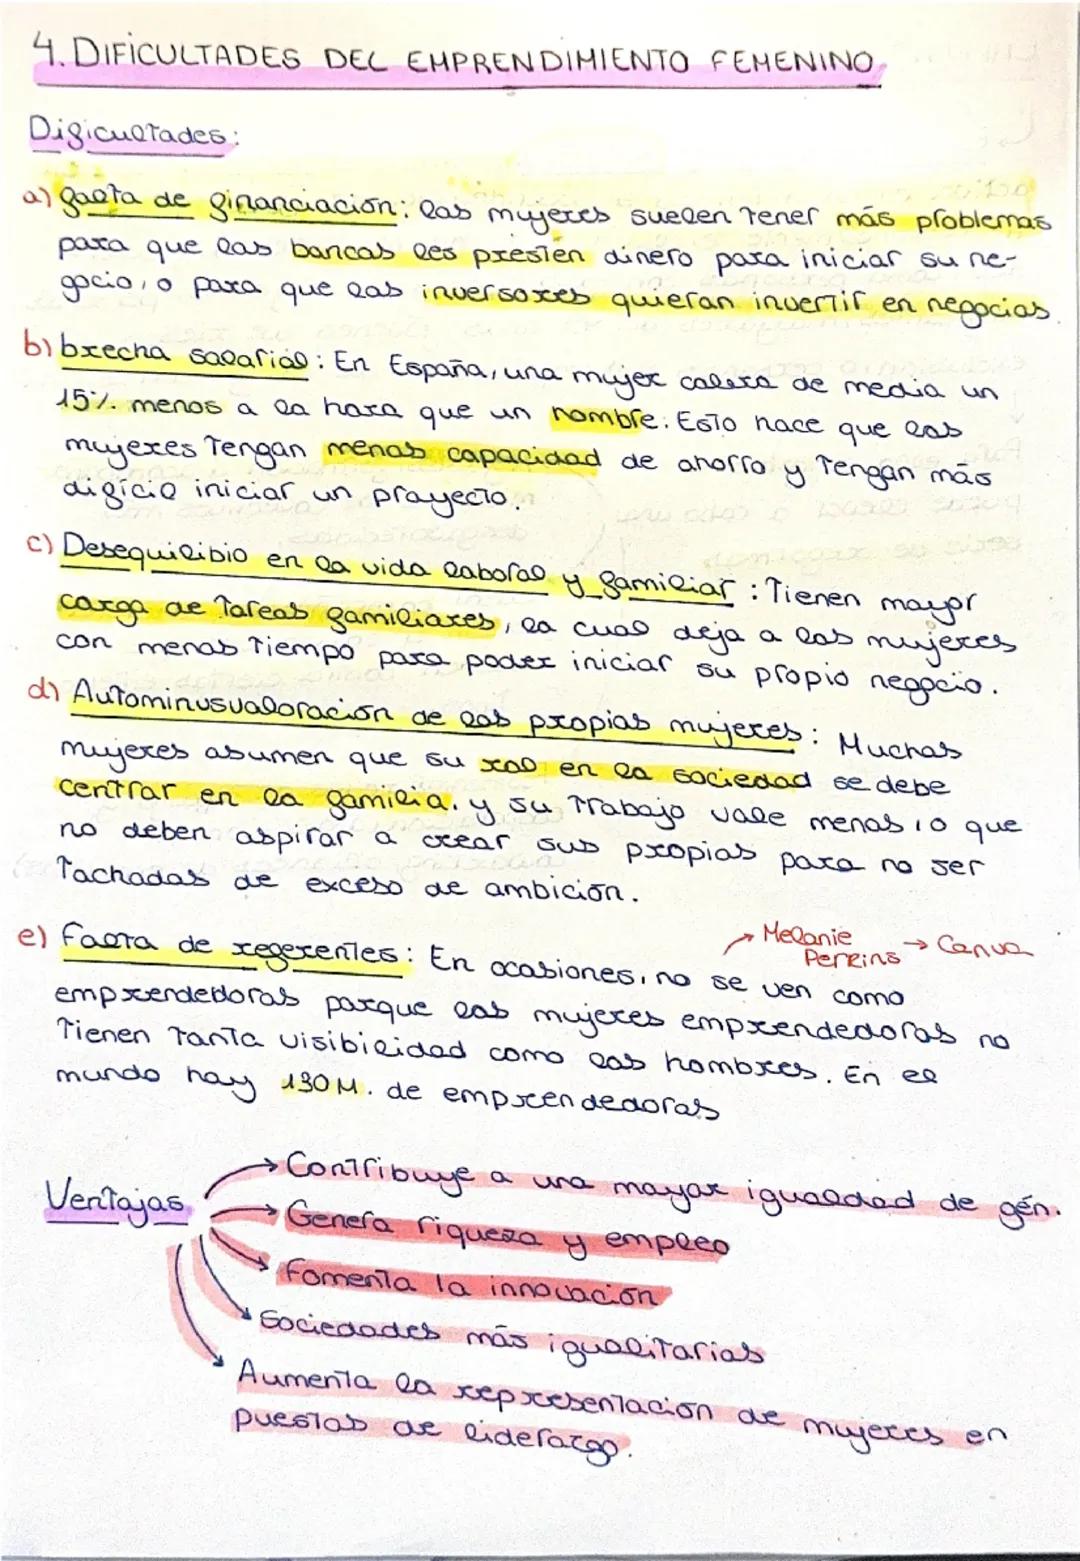 4. DIFICULTADES DEL EMPRENDIMIENTO FEMENINO
Dificultades:
a) falta de financiación: las mujeres suelen tener más problemas
para que las bancas les presten dinero para iniciar su ne-
gocio, o para que las inversores quieran invertir en negocios.
b) brecha salarial: En España, una mujer cobra de media un
15% menos a la hora que un hombre. Esto hace que las
mujeres tengan menos capacidad de ahorro y tengan más
difícil iniciar un proyecto.
c) Desequilibio en la vida laboral y familiar: Tienen mayor
carga de tareas familiares, la cual deja a las mujeres
con menos tiempo para poder iniciar su propio negocio.
d) Autominusvaloración de las propias mujeres: Muchas
mujeres asumen que su rol en la sociedad se debe
centrar en la familia, y su trabajo vale menos, o que
no deben aspirar a crear sus propias para no ser
tachadas de exceso de ambición.
e) Falta de referentes: En ocasiones, no se ven como
→ Melanie Perkins → Canva
emprendedoras porque las mujeres emprendedoras no
tienen tanta visibilidad como los hombres. En el
mundo hay 130M. de emprendedoras
Ventajas
→ Contribuye a una mayor igualdad de gén.
→ Genera riqueza y empleo
→ Fomenta la innovación
→ Sociedades más igualitarias
→ Aumenta la representación de mujeres en
puestos de liderazgo.